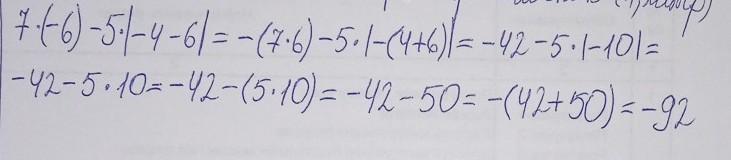 7·(-6)-5·|-4-6|=-(7·6)-5·|-(4+6)|=-42-5·|-10|=
-42-5·10=-42-(5·10)=-42-50=-(42+50)=-92